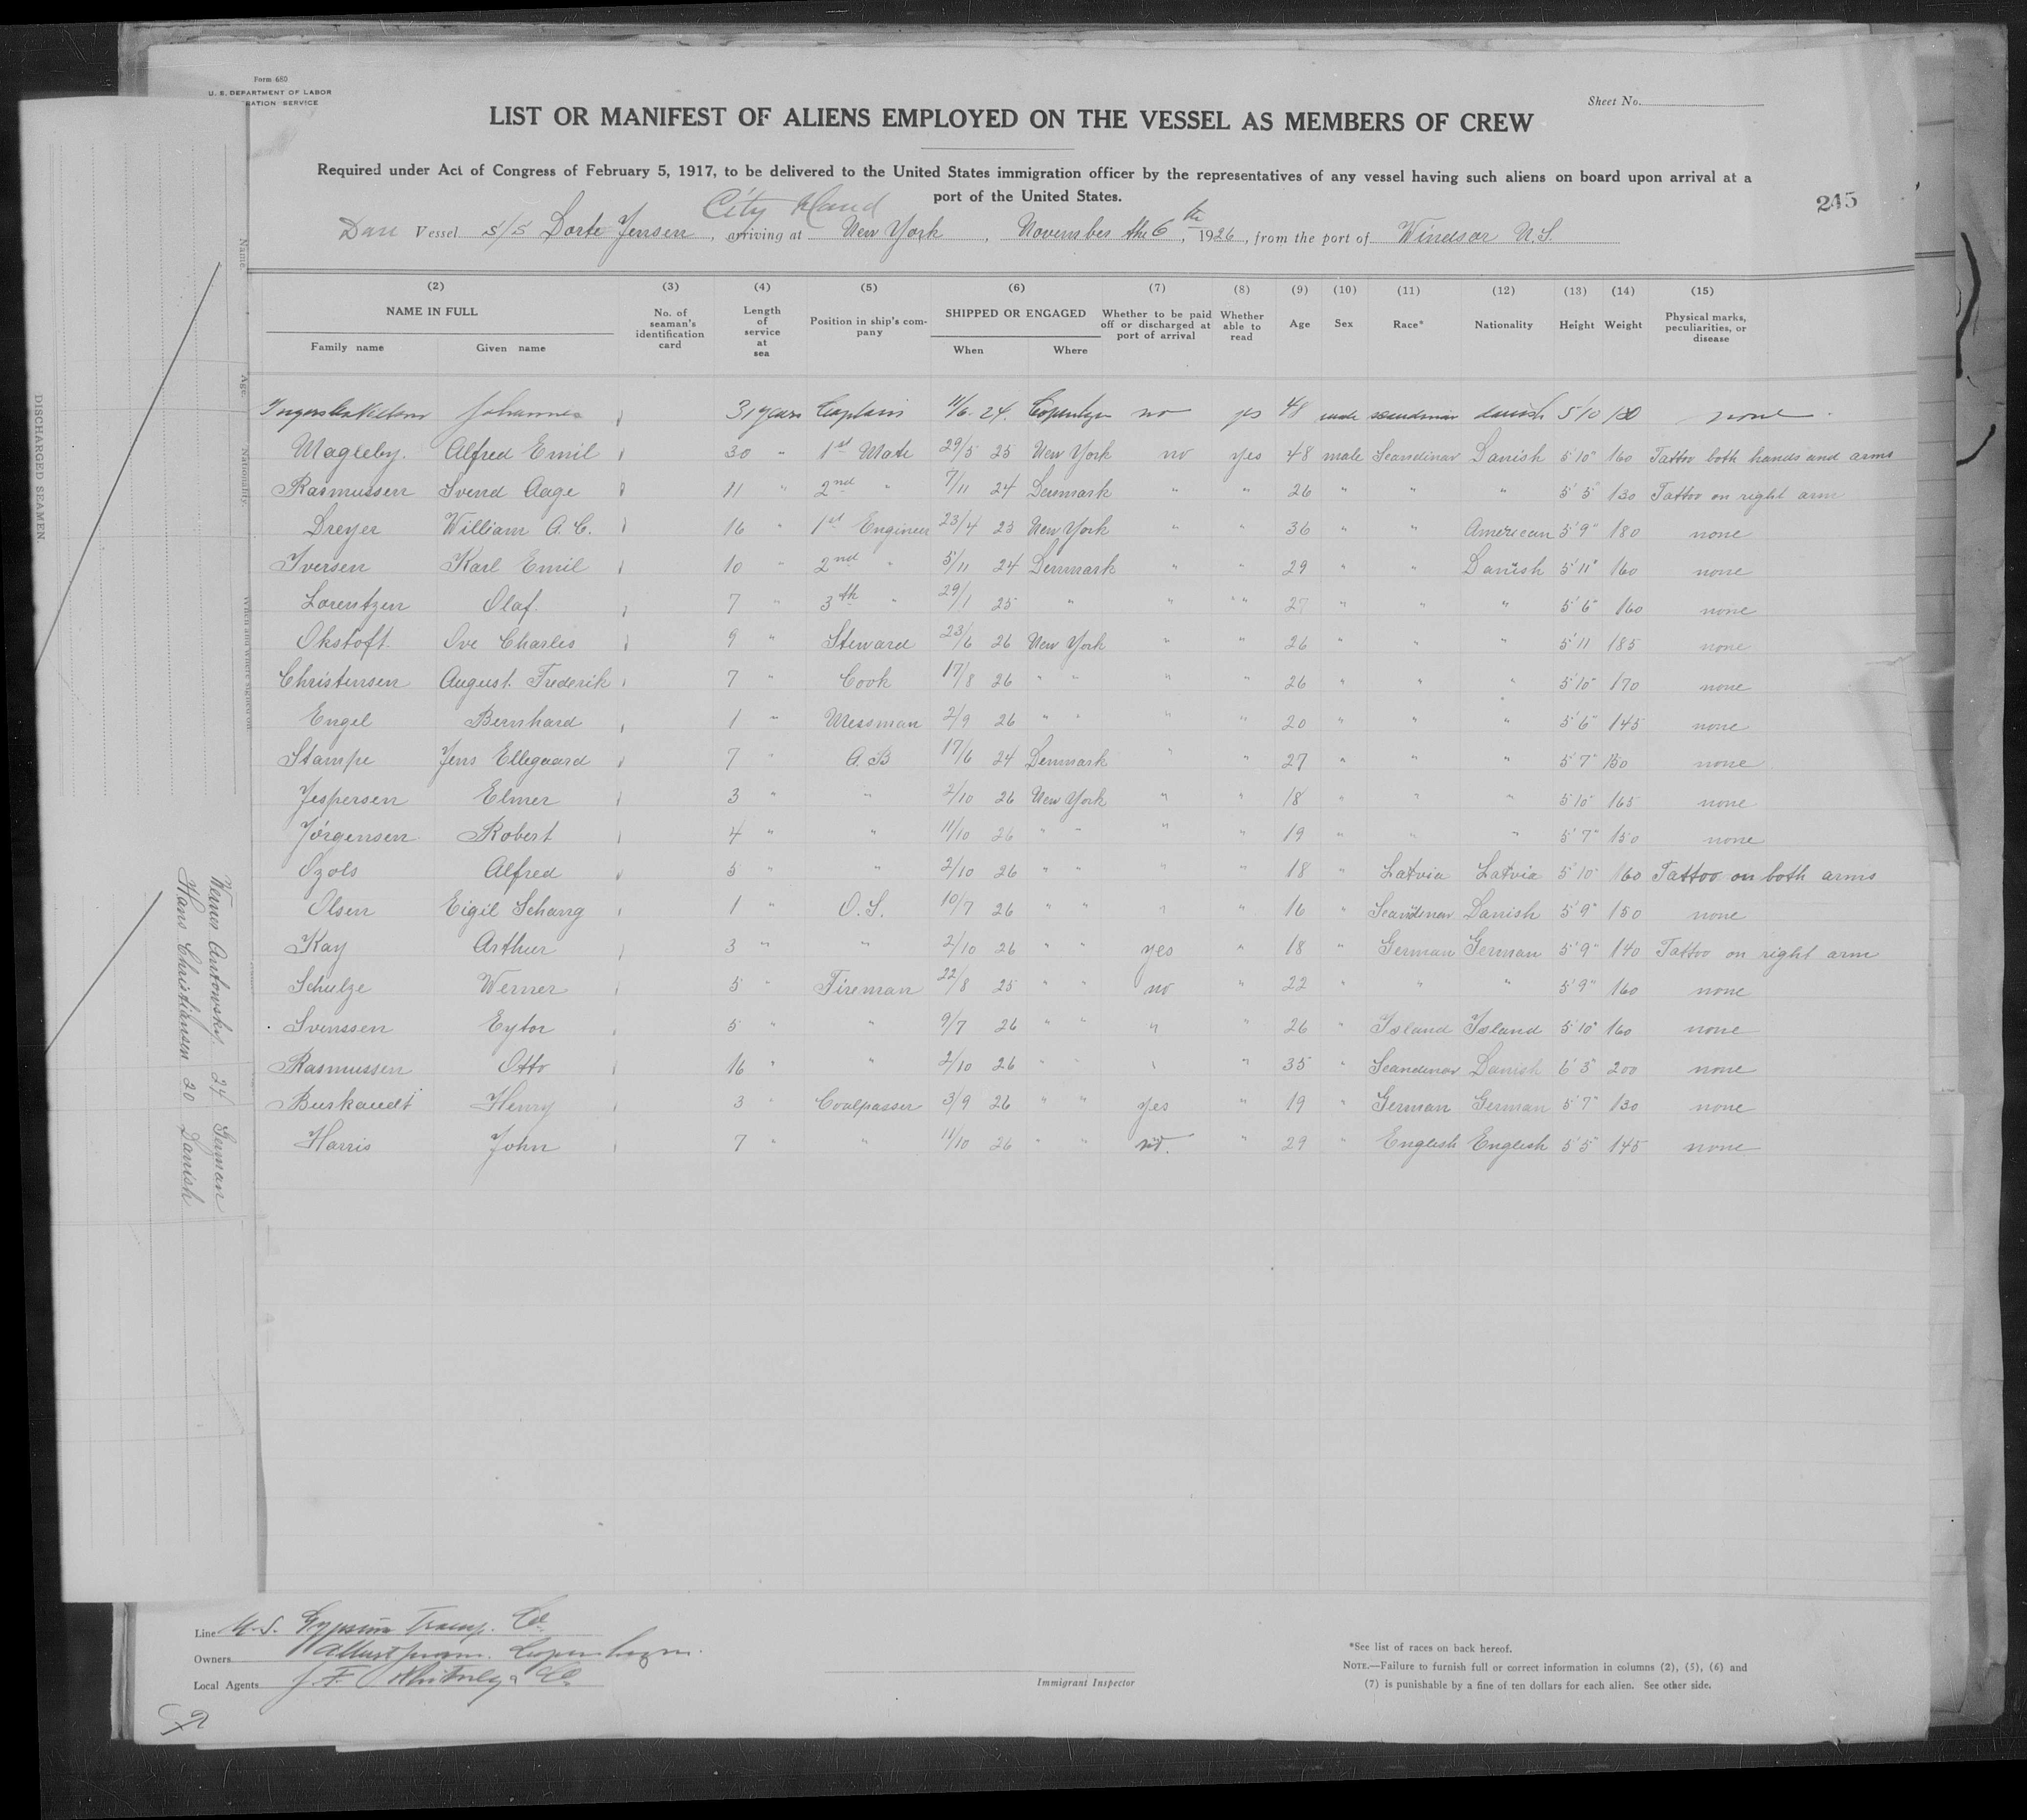 Form 680
U. S. DEPARTMENT OF LABOR
RATION SERVICE
Sheet No.
LIST OR MANIFEST OF ALIENS EMPLOYED ON THE VESSEL AS MEMBERS OF CREW
Required under Act of Congress of February 5, 1917, to be delivered to the United States immigration officer by the representatives of any vessel having such aliens on board upon arrival at a
port of the United States.
245
City Island
Dan Vessel S/S Dorte Jensen, arriving at New York, November the 6th, 1926, from the port of Windsor N.S.
(2) (3) (4) (5) (6) (7) (8) (9) (10) (11) (12) (13) (14) (15)
NAME IN FULL No. of seaman's identification card Length of service at sea Position in ship's company SHIPPED OR ENGAGED Whether to be paid off or discharged at port of arrival Whether able to read Age Sex Race* Nationality Height Weight Physical marks, peculiarities, or disease
Family name Given name When Where
Johannes 31 years Captain 11/6 24. Copenhgn no yes 48 male scandinav danish 5/10 none
Magleby. Alfred Emil 30 " 1st Mate 29/5 25 New York no yes 48 male Scandinav Danish 5'10" 160 Tattoo both hands and arms
Rasmussen Svend Aage 11 " 2nd " 7/11 24 Denmark " " 26 " " " 5'5" 130 Tattoo on right arm
Dreyer William A. C. 16 " 1st Engineer 23/4 25 New York " " 36 " " American 5'9" 180 none
Iversen Karl Emil 10 " 2nd " 5/11 24 Denmark " " 29 " " Danish 5'11" 160 none
Lorentzen Olaf. 7 " 3th " 29/1 25 " " " " 27 " " " 5'6" 160 none
Okstoft. Ove Charles 9 " Steward 23/6 26 New York " " 26 " " " 5'11 185 none
Christensen August. Frederik 7 " Cook 17/8 26 " " " " 26 " " " 5'10" 170 none
Engel Bernhard 1 " Messman 2/9 26 " " " " 20 " " " 5'6" 145 none
Stampe Jens Ellegaard 7 " A. B 17/6 24 Denmark " " 27 " " " 5'7" 150 none
Jespersen Elmer 3 " " 2/10 26 New York " " 18 " " " 5'10" 165 none
Jörgensen Robert 4 " " 11/10 26 " " " " 19 " " " 5'7" 150 none
Ozols Alfred 5 " " 2/10 26 " " " " 18 " Latvia Latvia 5'10" 160 Tattoo on both arms
Olsen Eigil Schang 1 " O. S. 10/7 26 " " " " 16 " Scandinav Danish 5'9" 150 none
Kay Arthur 3 " " 2/10 26 " " yes " 18 " German German 5'9" 140 Tattoo on right arm
Schulze Werner 5 " Fireman 22/8 25 " " no " 22 " " " 5'9" 160 none
Svenssen Eytor 5 " " 9/7 26 " " " " 26 " Island Island 5'10" 160 none
Rasmussen Otto 16 " " 2/10 26 " " " " 35 " Scandinav Danish 6'3" 200 none
Burkaudt Henry 3 " Coalpasser 3/9 26 " " yes " 19 " German German 5'7" 130 none
Harris John 7 " " 11/10 26 " " no. " 29 " English English 5'5" 145 none
DISCHARGED SEAMEN.
Name. Age. Nationality. When and where signed on
Werner Antowsky. 24 German
Hans Christiansen 20 Danish
Line U.S. Gypsum Transp. Co.
Owners Copenhagen.
Local Agents J. F. Whitney & Co.
Immigrant Inspector
*See list of races on back hereof.
NOTE.—Failure to furnish full or correct information in columns (2), (5), (6) and
(7) is punishable by a fine of ten dollars for each alien. See other side.